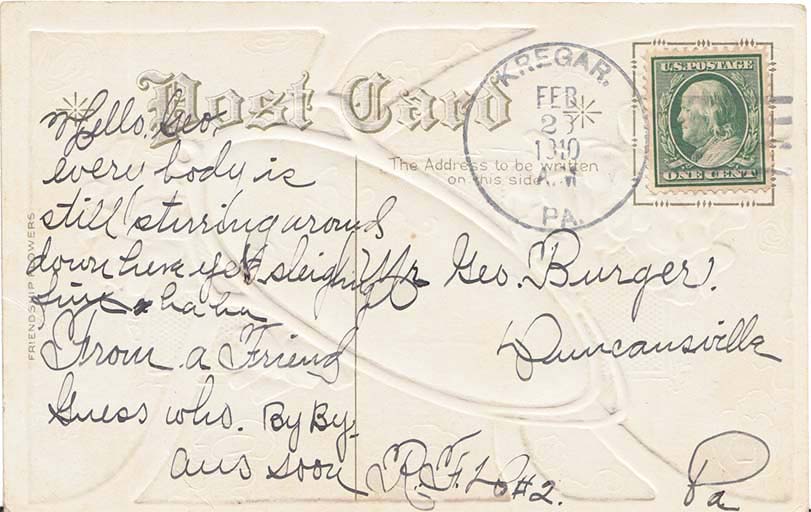 Post Card
The Address to be written
on this side.
KREGAR,
FEB
23
1910
A.M
PA.
U.S. POSTAGE
ONE CENT
FRIENDSHIP FLOWERS
Hello, Geo.
every body is
still stirring around
down here yet sleighing
fine haha
From a Friend
Guess who. By By
ans soon
Mr Geo. Burger.
Duncansville
R.F.D #2.
Pa